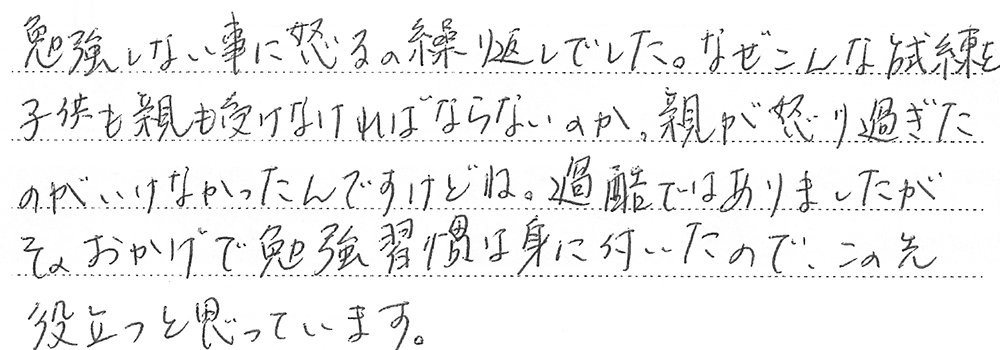 勉強しない事に怒るの繰り返しでした。なぜこんな試練を
子供も親も受けなければならないのか。親が怒り過ぎた
のがいけなかったんですけどね。過酷ではありましたが
そのおかげで勉強習慣は身に付いたので、この先
役立つと思っています。